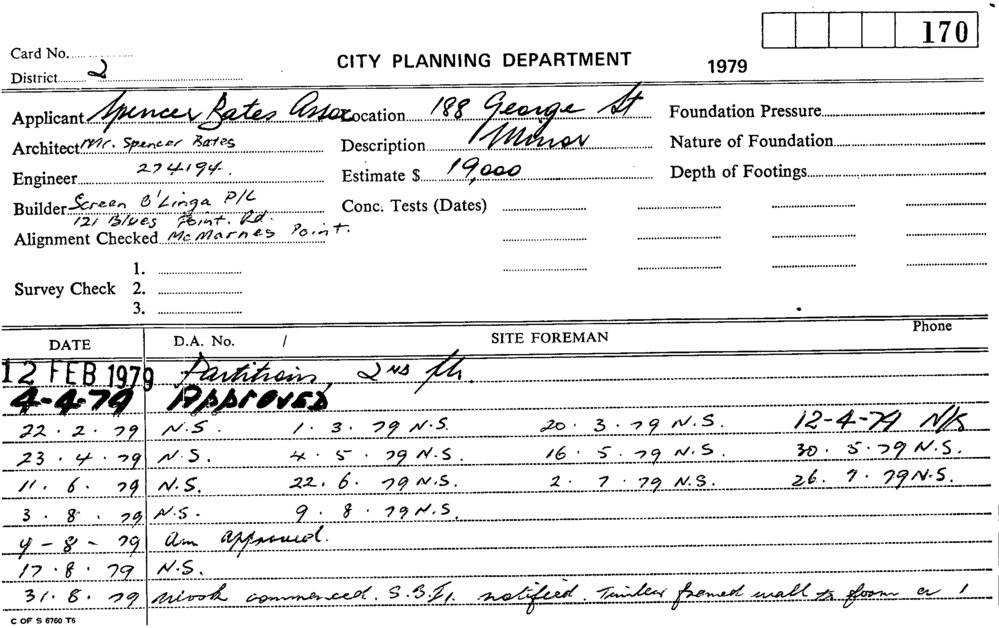 170
Card No.
CITY PLANNING DEPARTMENT 1979
District 2
Applicant Spencer Bates Assoc Location 188 George St Foundation Pressure
Architect Mr. Spencer Bates Description Minor Nature of Foundation
Engineer 274194. Estimate $ 19,000 Depth of Footings
Builder Screen O'Linga P/L Conc. Tests (Dates)
121 Blues Point. Rd.
Alignment Checked McMarnes Point.
1.
Survey Check 2.
3.
DATE D.A. No. / SITE FOREMAN Phone
12 FEB 1979 Partitions, 2ND flr.
4-4-79 APPROVED
22.2.79 N.S. 1.3.79 N.S. 20.3.79 N.S. 12-4-79 N/S
23.4.79 N.S. 4.5.79 N.S. 16.5.79 N.S. 30.5.79 N.S.
11.6.79 N.S. 22.6.79 N.S. 2.7.79 N.S. 26.7.79 N.S.
3.8.79 N.S. 9.8.79 N.S.
9-8-79 Am approved.
17.8.79 N.S.
31.8.79 Work commenced. notified. Timber framed wall to form 1
C OF S 6760 T6